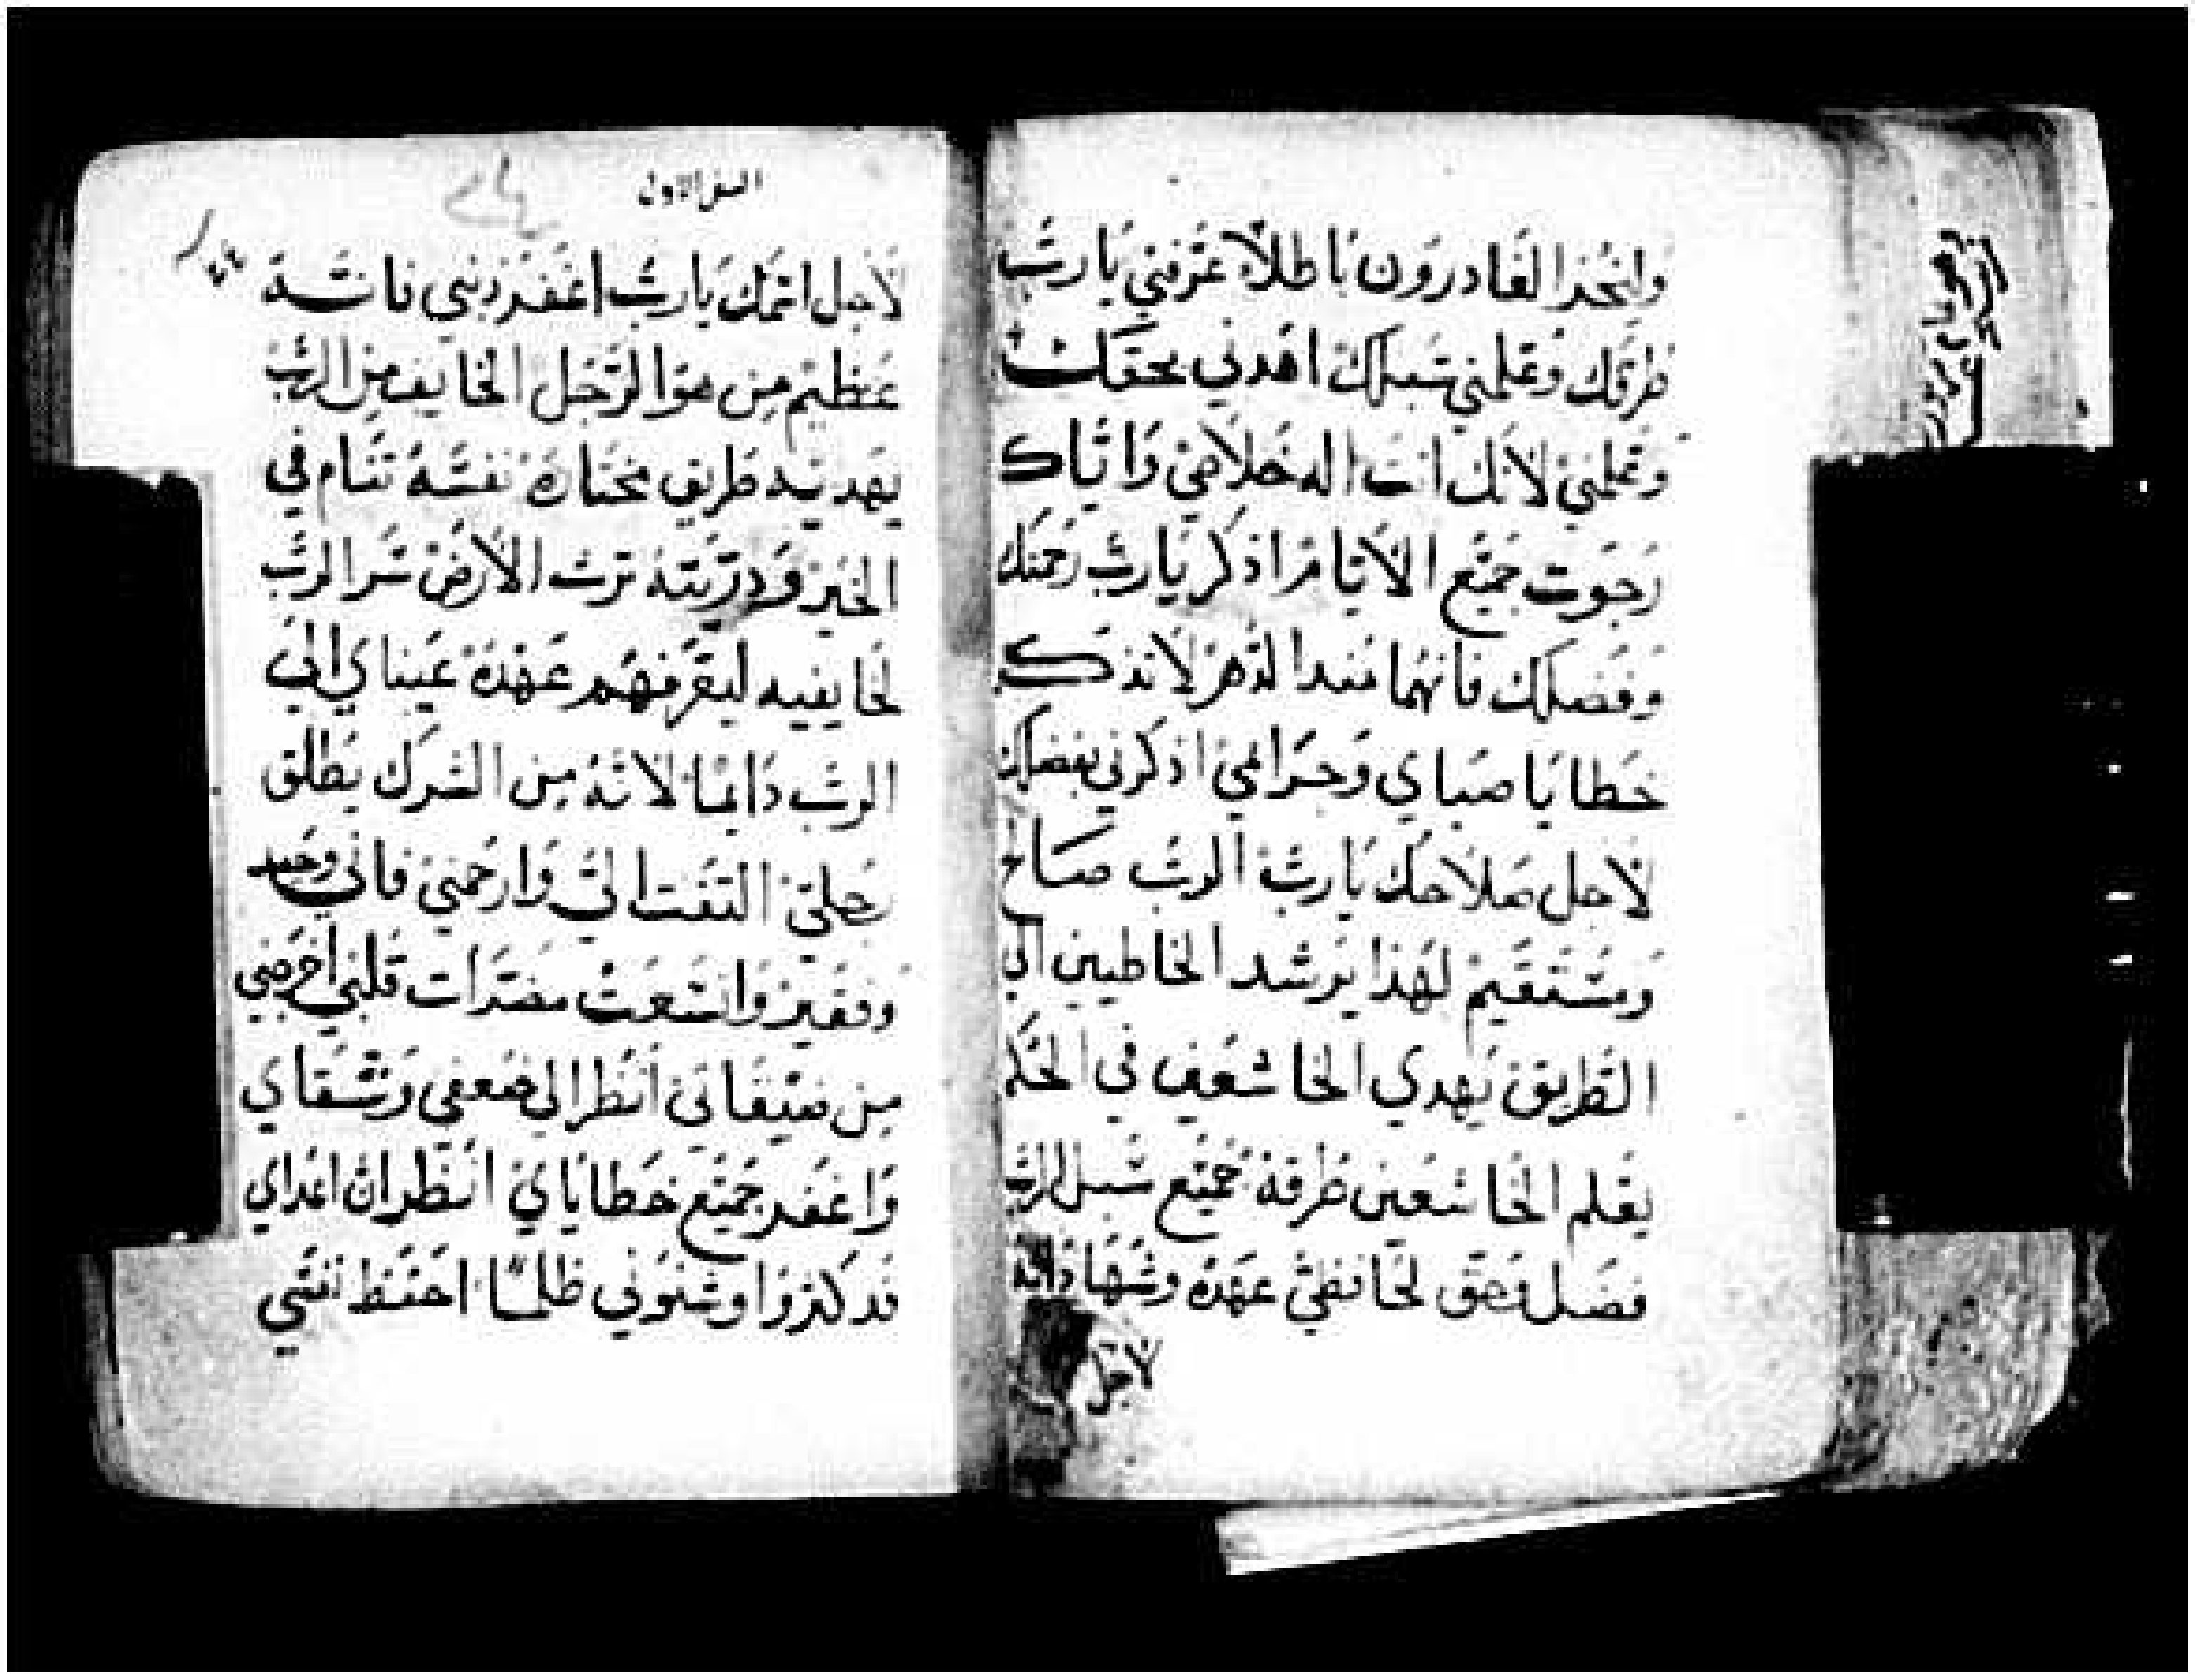 وانخذا الغادرون باطلاً عرفني يا رب
طرقك وعلمني سبلك اهدني بحقك
وعلمني لانك انت اله خلاصي واياك
رجوت جميع الايام اذكر يا رب رحمتك
وفضلك فانهما منذ الدهر لا تذكر
خطايا صباي وجرايمي اذكرني بفضلك
لاجل صلاحك يا رب الرب صالح
ومستقيم لهذا يرشد الخاطيين الى
الطريق يهدي الخاشعين في الحكم
يعلم الخاشعين طرقه جميع سبل الرب
فضل وحق لحافظي عهده وشهاداته
لاجل
السفر الاول
لاجل اسمك يا رب اغفر ذنبي فانه
عظيم من هو الرجل الخايف من الرب
يهديه طريق يختاره نفسه تنام في
الخير وذريته ترث الارض سر الرب
لخايفيه ليعرفهم عهده عيناي الى
الرب دايما لانه من الشرك يطلق
رجلي التفت الي وارحمني فاني وحيد
وفقير وانسعت مضرات قلبي اخرجني
من ضيقاتي انظر الى ضعفي وشقاي
واغفر جميع خطاياي انظر ان اعداي
قد كثروا وشنوني ظلما احفظ نفسي